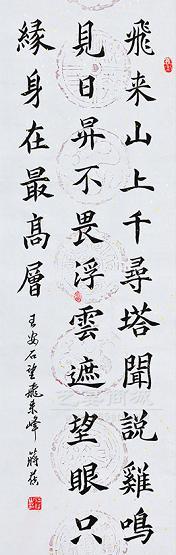 飛来山上千尋塔聞說雞鳴
見日昇不畏浮雲遮望眼只
緣身在最高層
王安石望飛来峰 蔣蓓